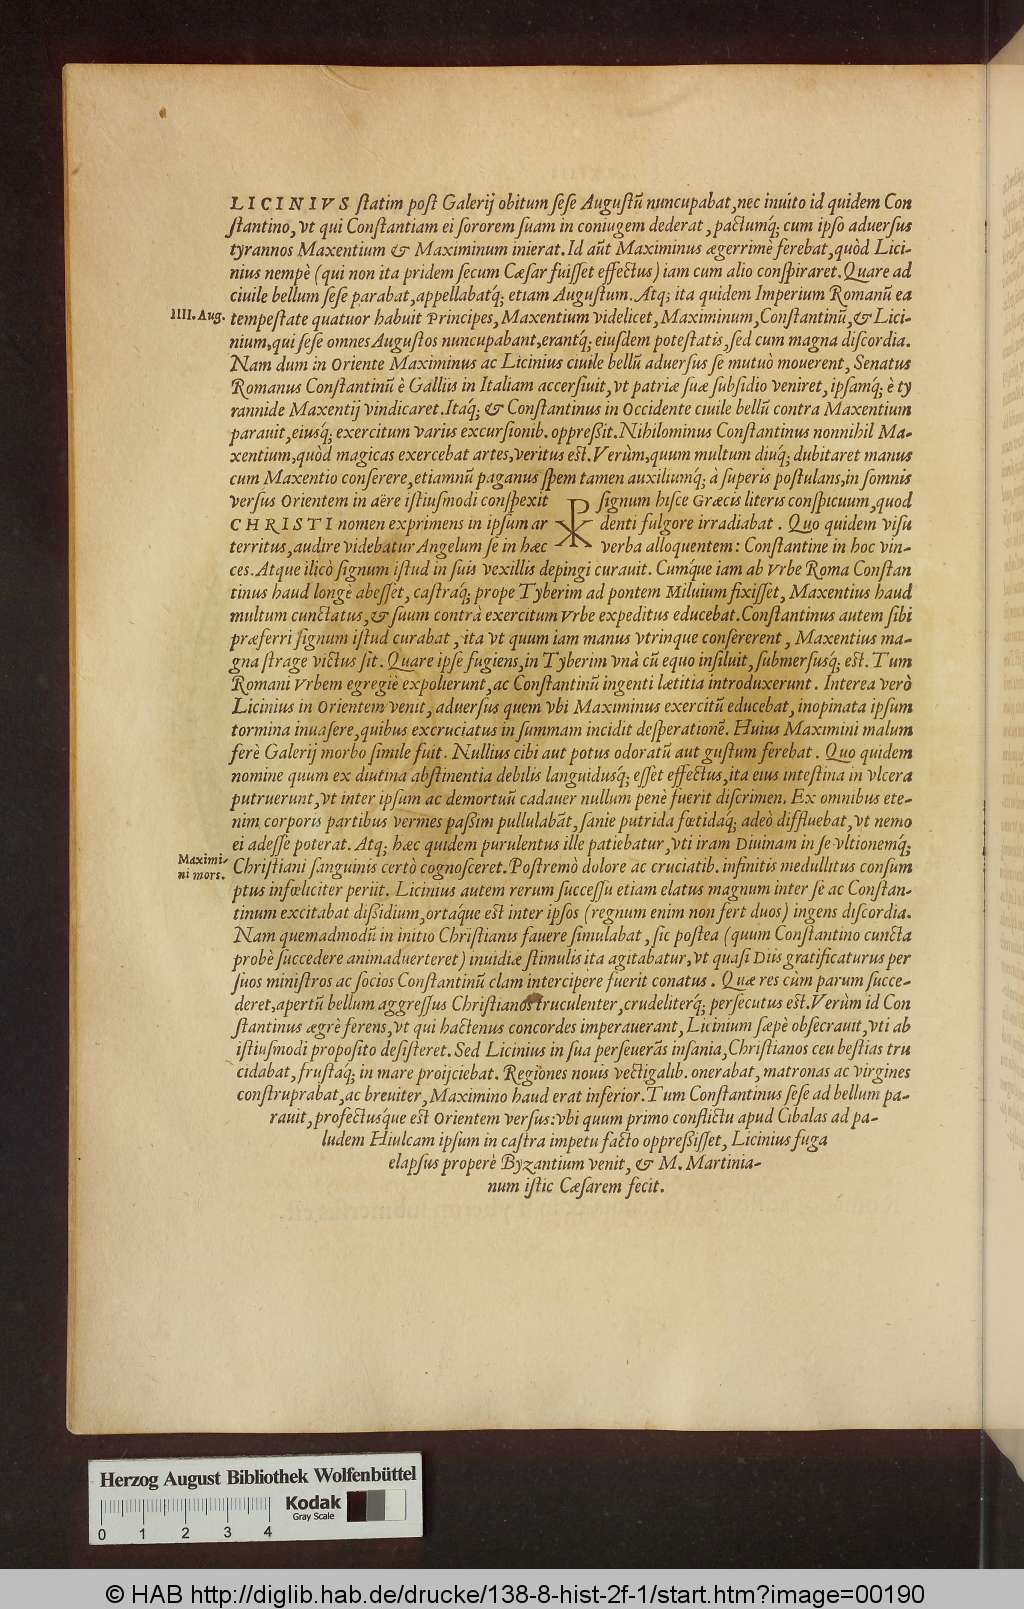 LICINIVS ſtatim poſt Galerij obitum ſeſe Auguſtũ nuncupabat, nec inuito id quidem Con
ſtantino, vt qui Conſtantiam ei ſororem ſuam in coniugem dederat, pactumq́; cum ipſo aduerſus
tyrannos Maxentium & Maximinum inierat. Id aũt Maximinus ægerrimè ferebat, quòd Lici-
nius nempè (qui non ita pridem ſecum Cæſar fuiſſet effectus) iam cum alio conſpiraret. Quare ad
ciuile bellum ſeſe parabat, appellabatq́; etiam Auguſtum. Atq; ita quidem Imperium Romanũ ea
IIII. Aug. tempeſtate quatuor habuit Principes, Maxentium videlicet, Maximinum, Conſtantinũ, & Lici-
nium, qui ſeſe omnes Auguſtos nuncupabant, erantq́; eiuſdem poteſtatis, ſed cum magna diſcordia.
Nam dum in Oriente Maximinus ac Licinius ciuile bellũ aduerſus ſe mutuò mouerent, Senatus
Romanus Conſtantinũ è Galliis in Italiam accerſiuit, vt patriæ ſuæ ſubſidio veniret, ipſamq́; è ty
rannide Maxentij vindicaret. Itaq́; & Conſtantinus in Occidente ciuile bellũ contra Maxentium
parauit, eiusq́; exercitum varius excurſionib. oppreßit. Nihilominus Conſtantinus nonnihil Ma-
xentium, quòd magicas exercebat artes, veritus eſt. Verùm, quum multum diuq́; dubitaret manus
cum Maxentio conſerere, etiamnũ paganus ſpem tamen auxiliumq́; à ſuperis poſtulans, in ſomnis
verſus Orientem in aëre iſtiuſmodi conſpexit ☧ ſignum hiſce Græcis literis conſpicuum, quod
CHRISTI nomen exprimens in ipſum ar denti fulgore irradiabat. Quo quidem viſu
territus, audire videbatur Angelum ſe in hæc verba alloquentem: Conſtantine in hoc vin-
ces. Atque ilicò ſignum iſtud in ſuis vexillis depingi curauit. Cumq́ue iam ab Vrbe Roma Conſtan
tinus haud longè abeſſet, caſtraq́; prope Tyberim ad pontem Miluium fixiſſet, Maxentius haud
multum cunctatus, & ſuum contrà exercitum Vrbe expeditus educebat. Conſtantinus autem ſibi
præferri ſignum iſtud curabat, ita vt quum iam manus vtrinque conſererent, Maxentius ma-
gna ſtrage victus ſit. Quare ipſe fugiens, in Tyberim vnà cũ equo inſiluit, ſubmerſusq́; eſt. Tum
Romani Vrbem egregiè expolierunt, ac Conſtantinũ ingenti lætitia introduxerunt. Interea verò
Licinius in Orientem venit, aduerſus quem vbi Maximinus exercitũ educebat, inopinata ipſum
tormina inuaſere, quibus excruciatus in ſummam incidit deſperationẽ. Huius Maximini malum
ferè Galerij morbo ſimile fuit. Nullius cibi aut potus odoratũ aut guſtum ferebat. Quo quidem
nomine quum ex diutina abſtinentia debilis languidusq́; eſſet effectus, ita eius inteſtina in vlcera
putruerunt, vt inter ipſum ac demortuũ cadauer nullum penè fuerit diſcrimen. Ex omnibus ete-
nim corporis partibus vermes paßim pullulabãt, ſanie putrida fœtidaq́; adeò diffluebat, vt nemo
ei adeſſe poterat. Atq; hæc quidem purulentus ille patiebatur, vti iram Diuinam in ſe vltionemq́;
Maximi-
ni mors. Chriſtiani ſanguinis certò cognoſceret. Poſtremò dolore ac cruciatib. infinitis medullitus conſum
ptus infœliciter periit. Licinius autem rerum ſucceſſu etiam elatus magnum inter ſe ac Conſtan-
tinum excitabat dißidium, ortaq́ue eſt inter ipſos (regnum enim non fert duos) ingens diſcordia.
Nam quemadmodũ in initio Chriſtianis fauere ſimulabat, ſic poſtea (quum Conſtantino cuncta
probè ſuccedere animaduerteret) inuidiæ ſtimulis ita agitabatur, vt quaſi Diis gratificaturus per
ſuos miniſtros ac ſocios Conſtantinũ clam intercipere fuerit conatus. Quæ res cùm parum ſucce-
deret, apertũ bellum aggreſſus Chriſtianos truculenter, crudeliterq́; perſecutus eſt. Verùm id Con
ſtantinus ægrè ferens, vt qui hactenus concordes imperauerant, Licinium ſæpè obſecrauit, vti ab
iſtiuſmodi propoſito deſiſteret. Sed Licinius in ſua perſeuerãs inſania, Chriſtianos ceu beſtias tru
cidabat, fruſtaq́; in mare proijciebat. Regiones nouis vectigalib. onerabat, matronas ac virgines
conſtruprabat, ac breuiter, Maximino haud erat inferior. Tum Conſtantinus ſeſe ad bellum pa-
rauit, profectusq́ue eſt Orientem verſus: vbi quum primo conflictu apud Cibalas ad pa-
ludem Hiulcam ipſum in caſtra impetu facto oppreßiſſet, Licinius fuga
elapſus properè Byzantium venit, & M. Martinia-
num iſtic Cæſarem fecit.
Herzog August Bibliothek Wolfenbüttel
Kodak
Gray Scale
0 1 2 3 4
© HAB http://diglib.hab.de/drucke/138-8-hist-2f-1/start.htm?image=00190